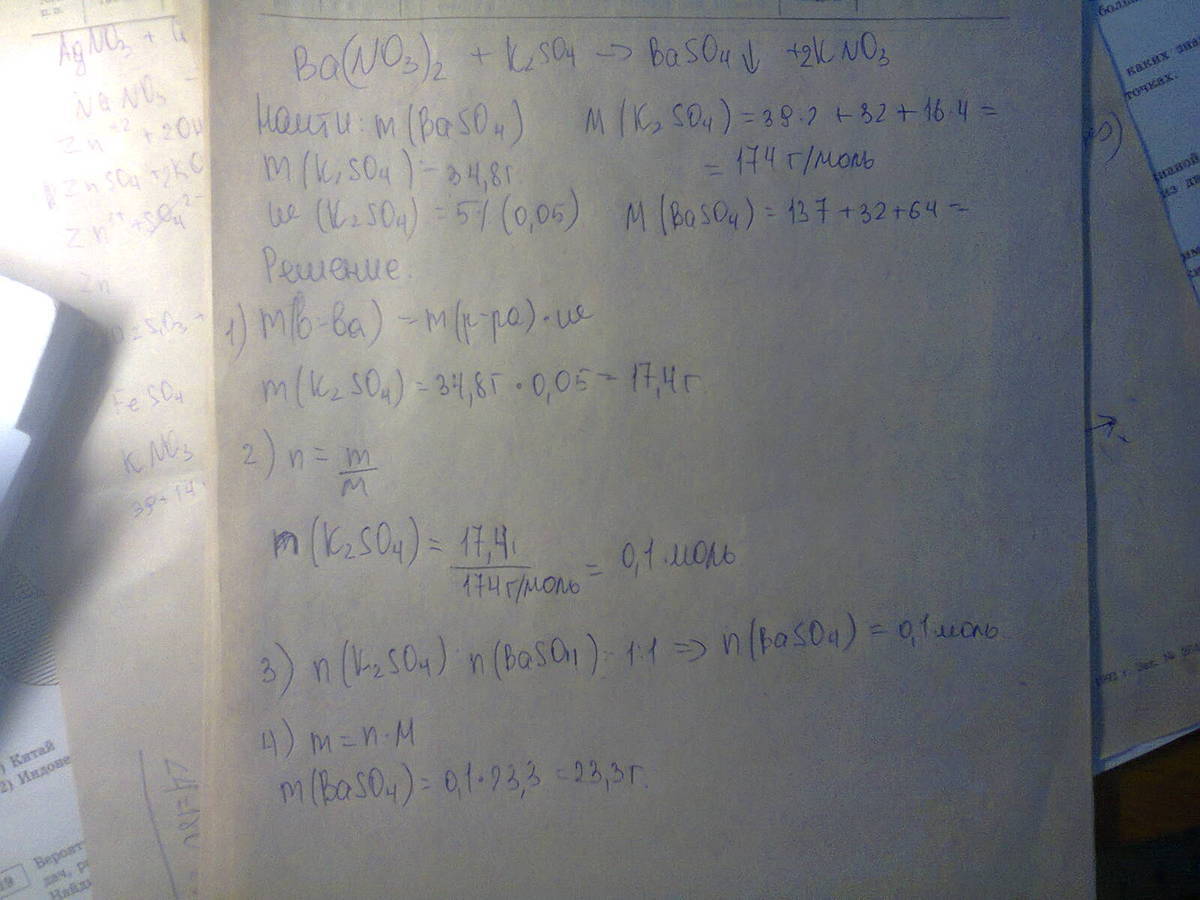 Ba(NO3)2 + K2SO4 → BaSO4↓ +2KNO3
Найти: m(BaSO4)
M(K2SO4) = 39·2 + 32 + 16·4 =
= 174 г/моль
m(K2SO4) = 34,8г.
ω(K2SO4) = 5% (0,05)
M(BaSO4) = 137 + 32 + 64 =
Решение.
1) m(в-ва) = m(р-ра)·ω
m(K2SO4) = 34,8г·0,05 = 17,4г
2) n = m/M
n(K2SO4) = 17,4г/174г/моль = 0,1 моль
3) n(K2SO4) : n(BaSO4) = 1:1 => n(BaSO4) = 0,1 моль
4) m = n·M
m(BaSO4) = 0,1·23,3 = 23,3г.
AgNO3 +
NaNO3
Zn+2 + 2OH
ZnSO4 +2KO
Zn
FeSO4
KNO3
39+14
) Китай
2) Индоне
19
Вероят
дач, р
Найд
каких зна
точках.
1992 г. Зак. №